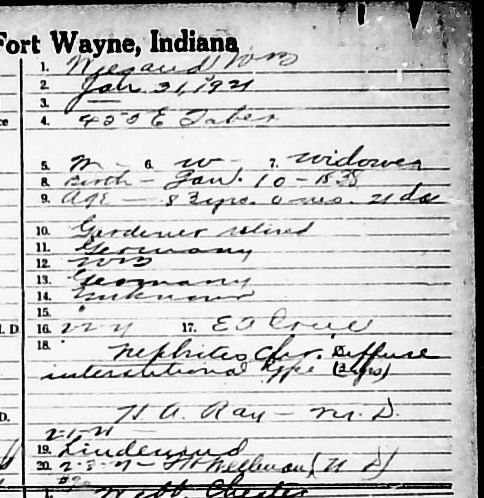 Fort Wayne, Indiana
1. Wiegand Wm
2. Jan. 31, 1921
3. —
4. 455 E Taber
5. M - 6. W - 7. Widower
8. Birth - Jan. 10 - 1838
9. Age - 83 yrs. 0 mos. 21 da
10. Gardener retired
11. Germany
12. Wm
13. Germany
14. Unknown
15.
16. 17. E A
18. Nephrites Chr. Diffuse
interstitional type (2 yrs)
H. A. Ray - M. D.
2-1-21
19. Lindenwood
20. 2-3-21 -
1. Webb, Chester